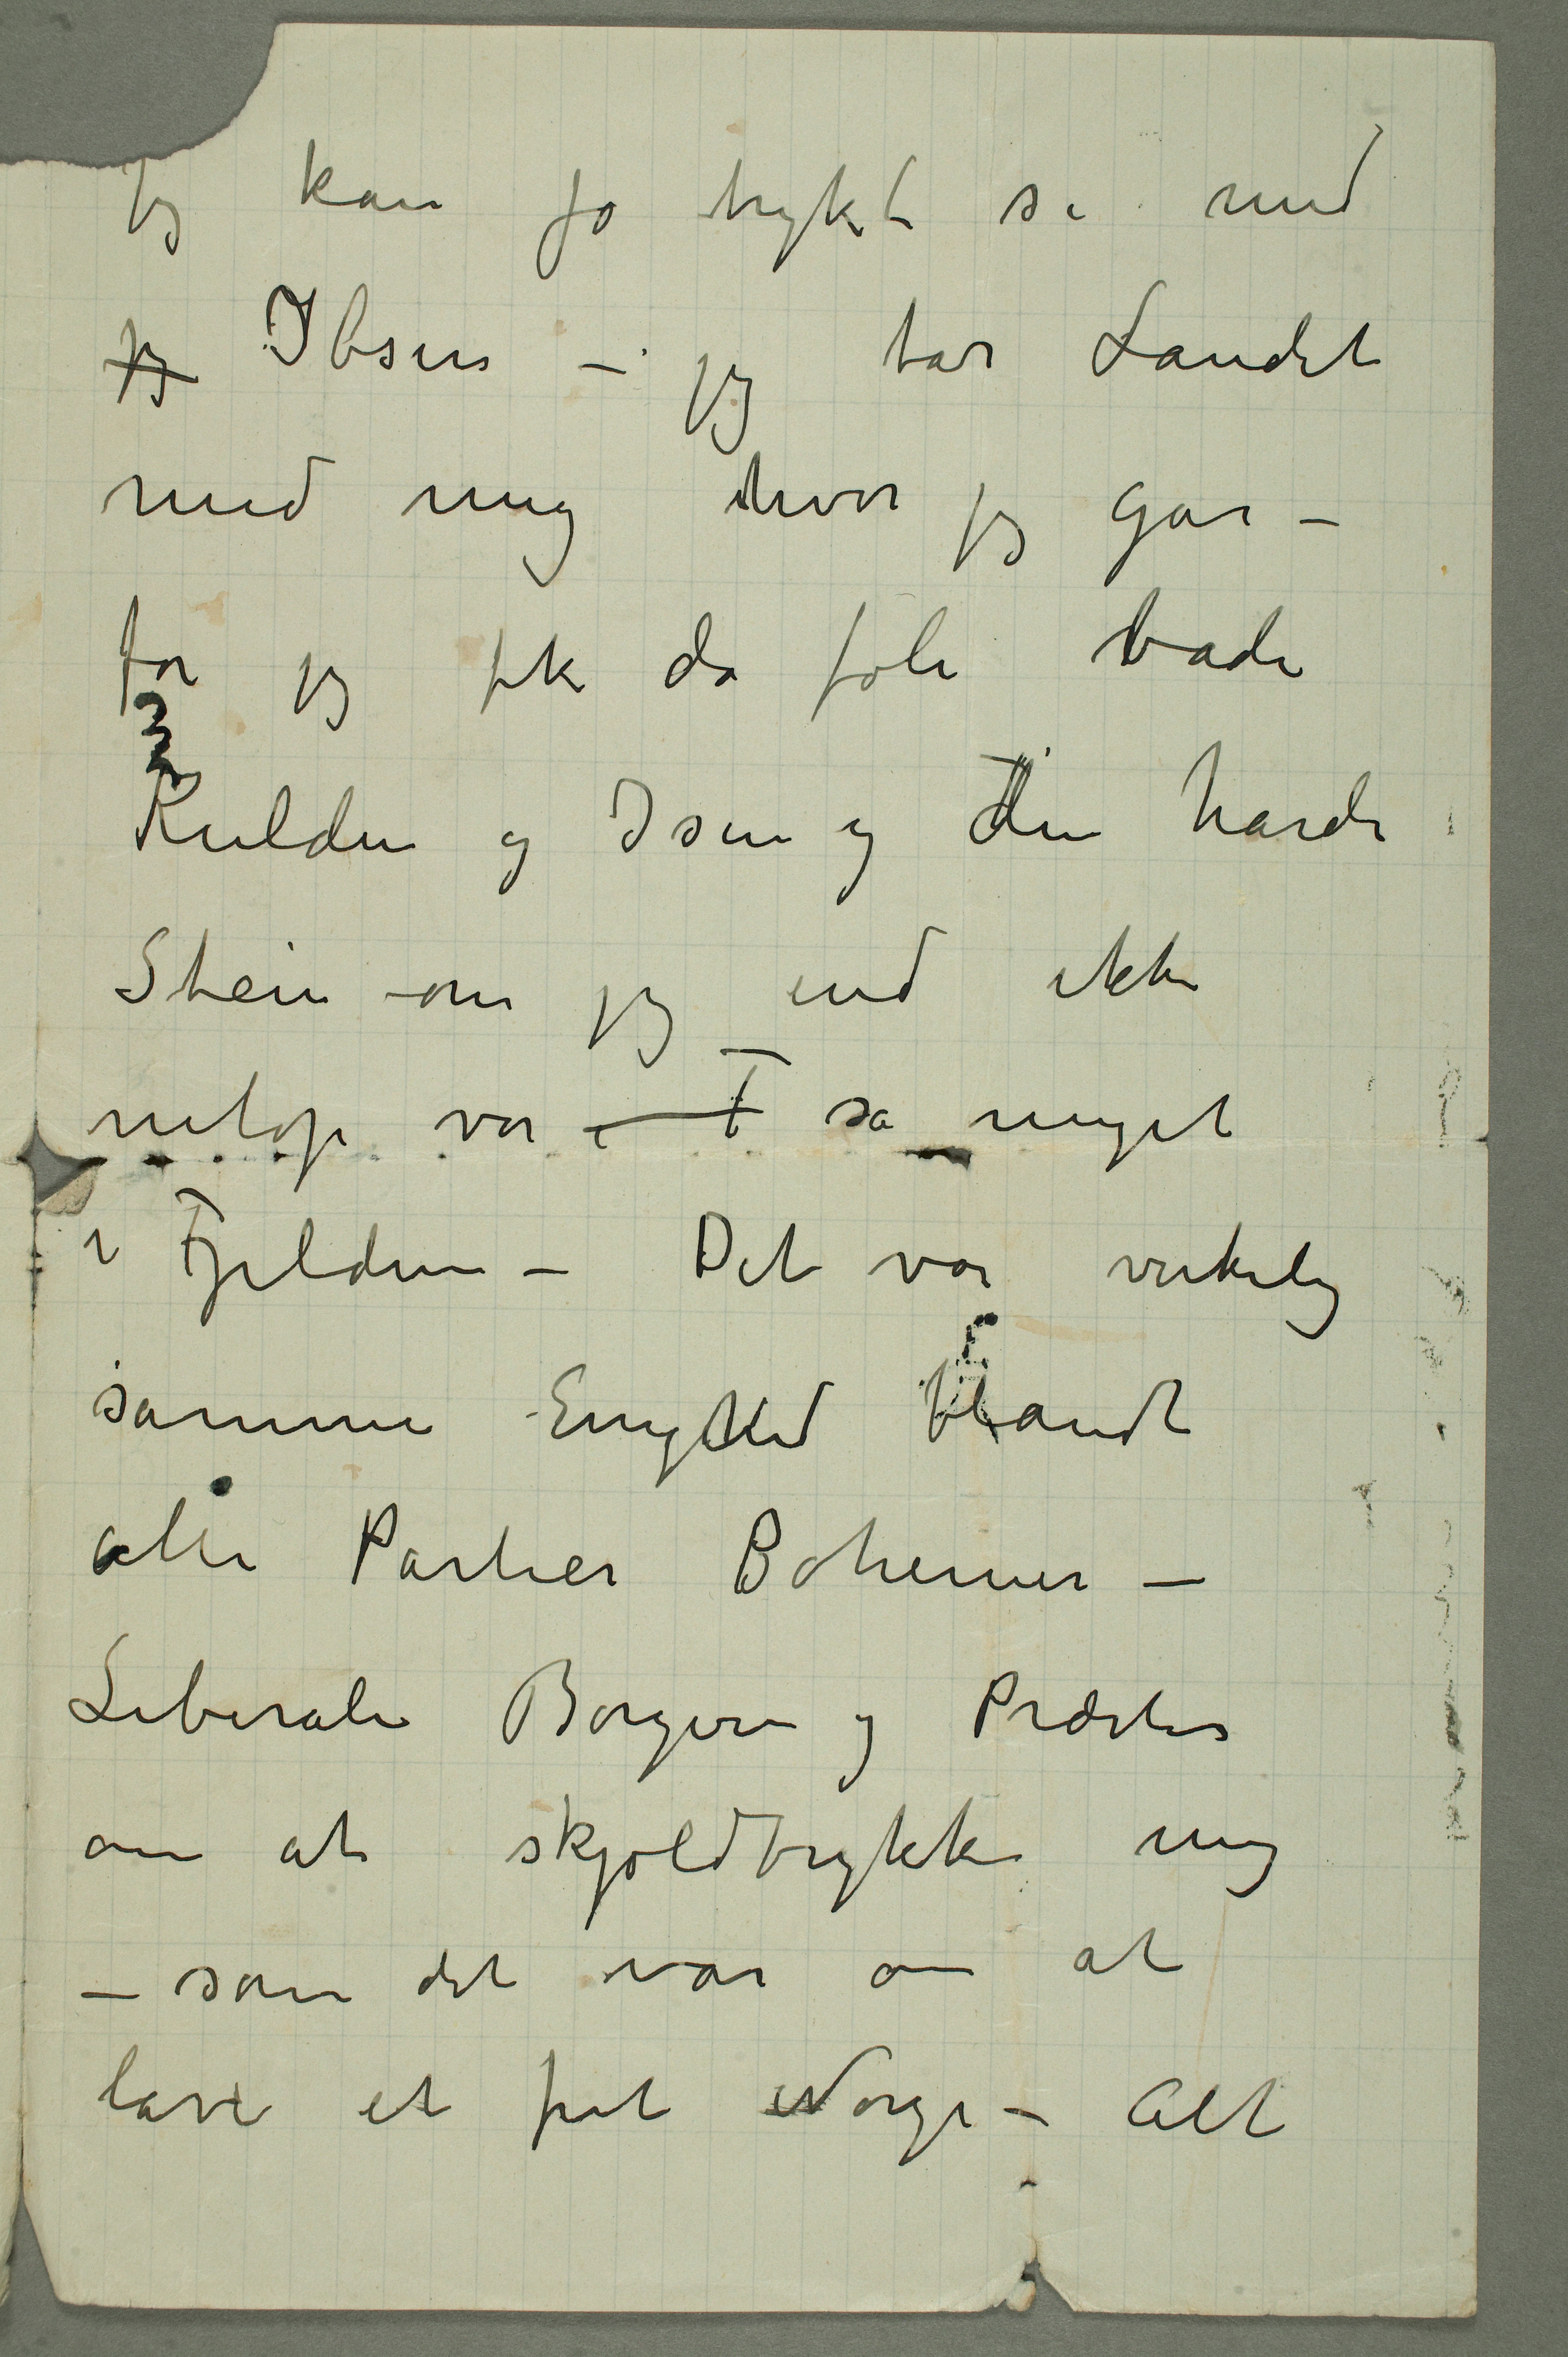 jeg kan jo trykt si med
jeg Ibsen – jeg tar Landet
med mig hvor jeg går –
for jeg fik da føle både
Kulden og Isen og den hårde
Stein om jeg end ikke
netop var så meget
i Fjeldene – Det var virkelig
samme Enighed blandt
alle Partier Bohemer –
Liberale Borgere og Præster
om at skjoldtrykke mig
– som det var om at
lave et frit Norge – Alt